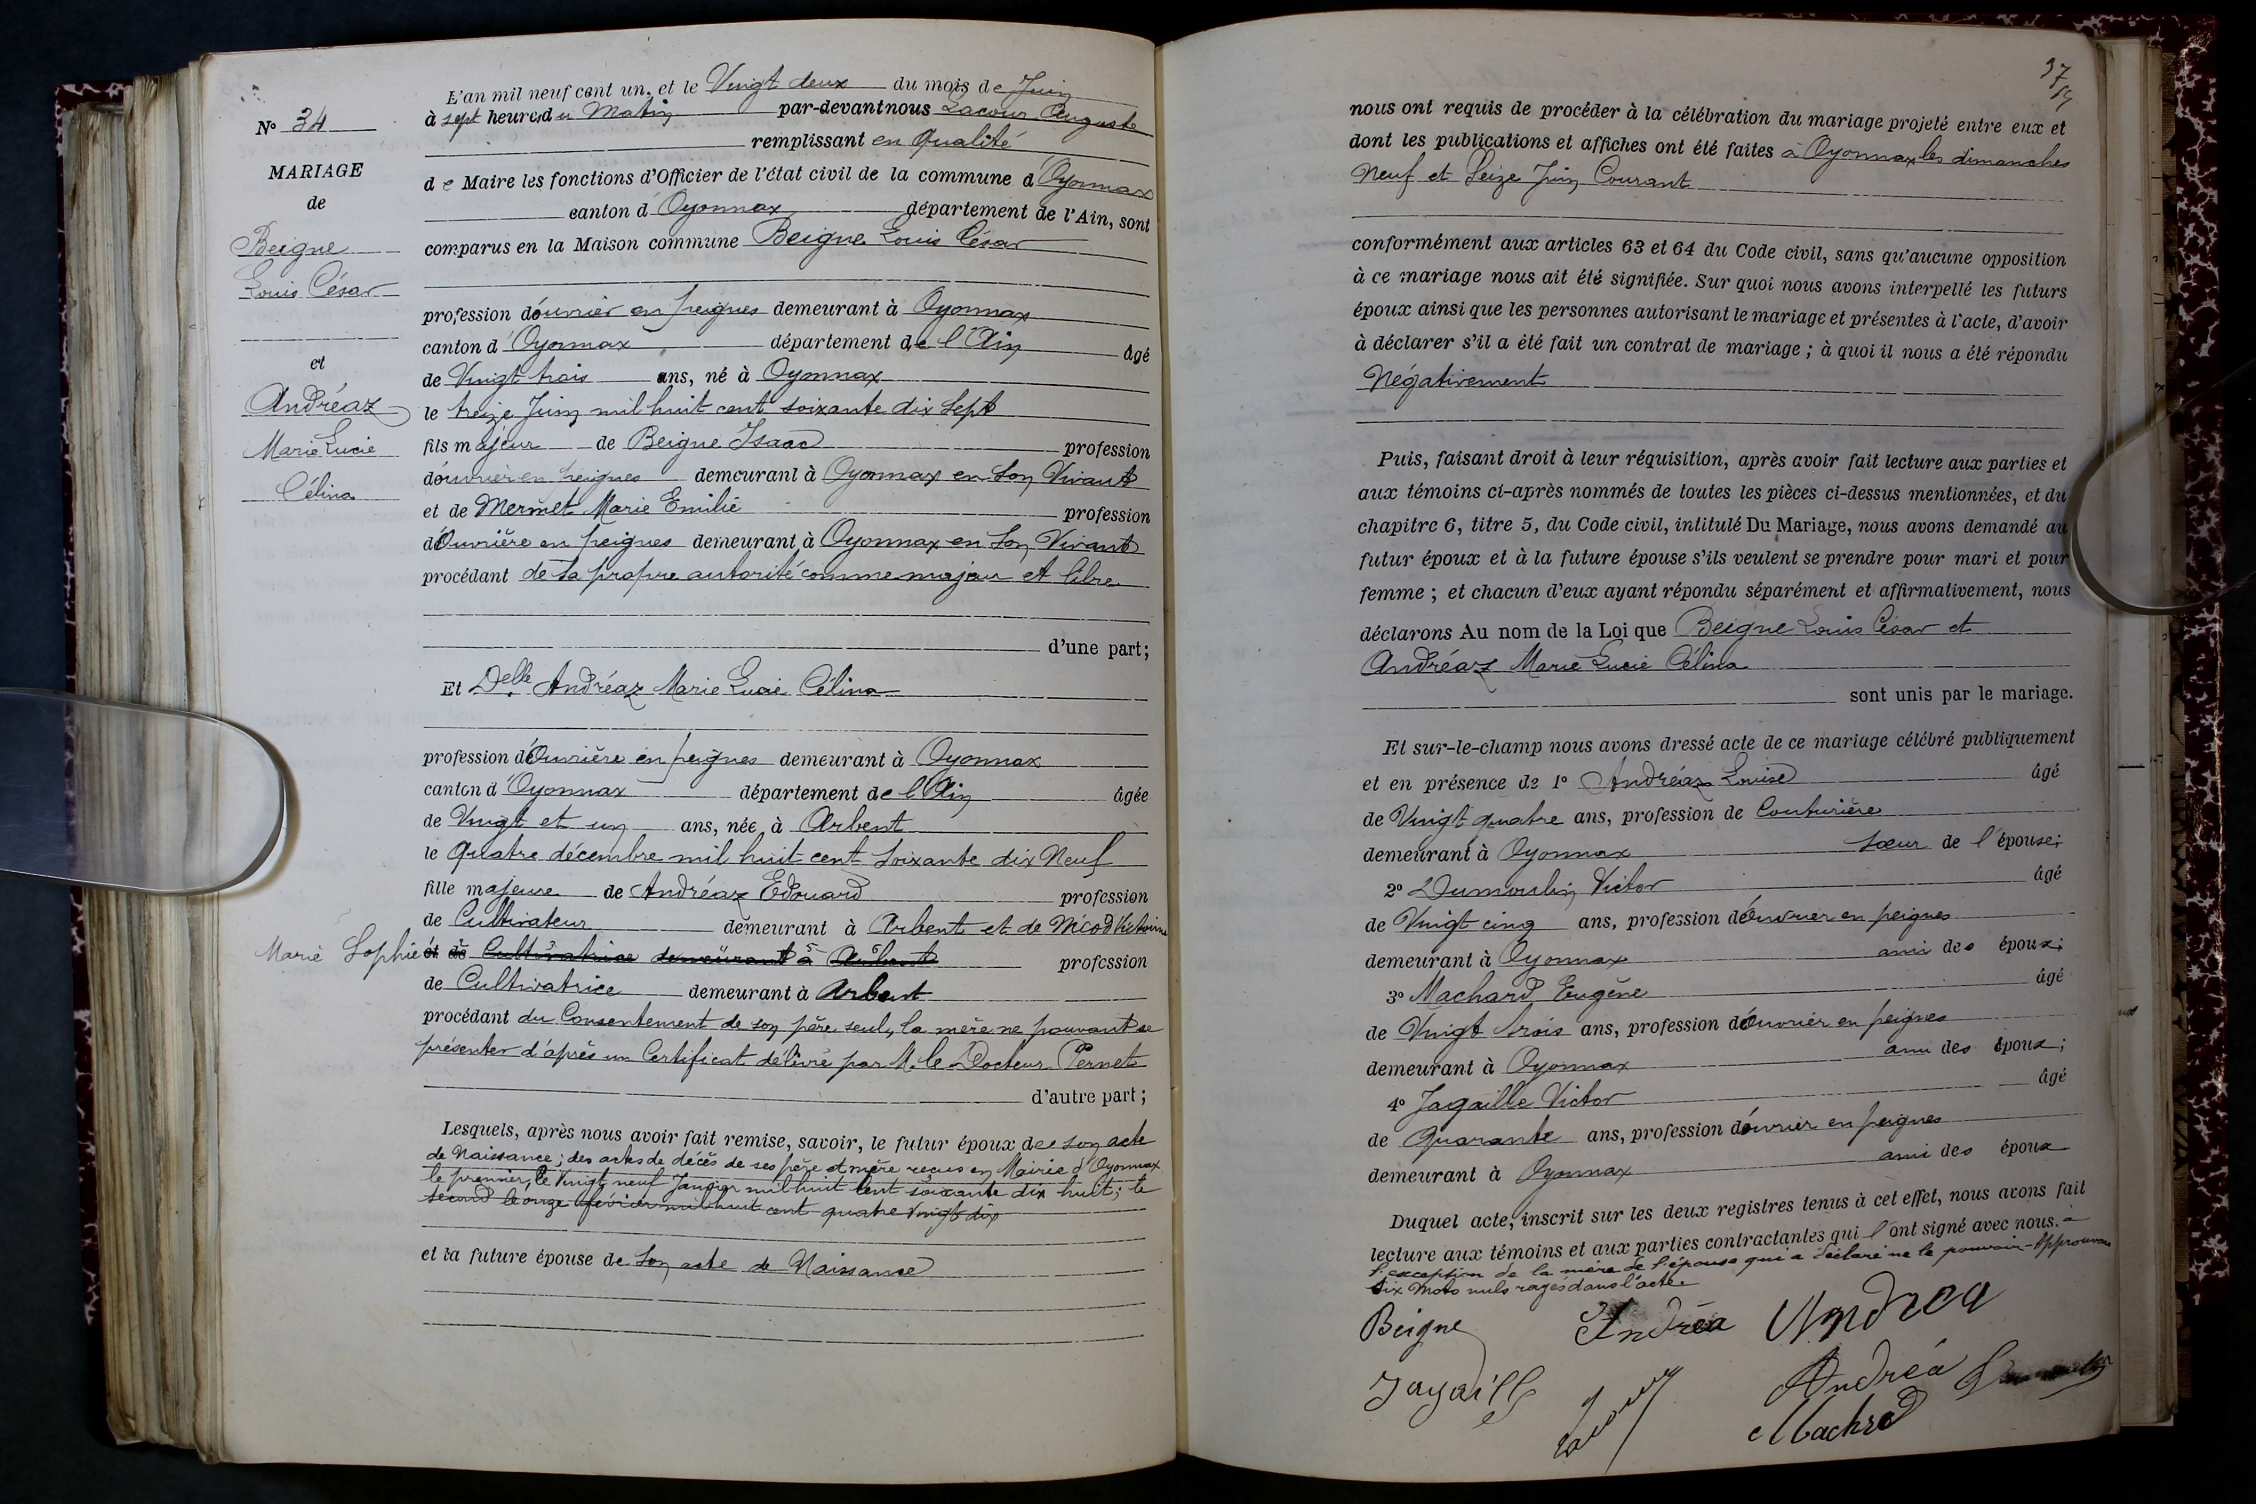 N° 34
MARIAGE
de
Beigne
Louis César
et
Andréaz
Marie Lucie
Célina
L'an mil neuf cent un, et le Vingt deux du mois de Juin
à sept heures du Matin par-devant nous Lacour Auguste
remplissant en Qualité
de Maire les fonctions d'Officier de l'état civil de la commune d'Oyonnax
canton d Oyonnax département de l'Ain, sont
comparus en la Maison commune Beigne Louis César
profession d'ouvrier en peignes demeurant à Oyonnax
canton d'Oyonnax département de l'Ain âgé
de Vingt trois ans, né à Oyonnax
le treize Juin mil huit cent soixante dix sept
fils majeur de Beigne Isaac profession
d'ouvrier en peignes demeurant à Oyonnax en son Vivant
et de Mermet Marie Emilie profession
d'Ouvrière en peignes demeurant à Oyonnax en son Vivant
procédant de sa propre autorité comme majeur et libre
d'une part;
Et Delle Andréaz Marie Lucie Célina
profession d'Ouvrière en peignes demeurant à Oyonnax
canton d'Oyonnax département de l'Ain âgée
de Vingt et un ans, née à Arbent
le quatre décembre mil huit cent soixante dix Neuf
fille majeure de Andréaz Edouard profession
de Cultivateur demeurant à Arbent et de Nicod Victoine
Marie Sophie et de Cultivatrice demeurant à Arbent profession
de Cultivatrice demeurant à Arbent
procédant du Consentement de son père seul, la mère ne pouvant se
présenter d'après un Certificat délivré par M. le Docteur Pernet
d'autre part;
Lesquels, après nous avoir fait remise, savoir, le futur époux de son acte
de Naissance; des actes de décès de ses père et mère reçus en Mairie d'Oyonnax
le premier, le Vingt neuf Janvier mil huit cent soixante dix huit; le
second le onze février mil huit cent quatre vingt dix
et la future épouse de son acte de Naissance
37
nous ont requis de procéder à la célébration du mariage projeté entre eux et
dont les publications et affiches ont été faites à Oyonnax les dimanches
Neuf et Seize Juin Courant
conformément aux articles 63 et 64 du Code civil, sans qu'aucune opposition
à ce mariage nous ait été signifiée. Sur quoi nous avons interpellé les futurs
époux ainsi que les personnes autorisant le mariage et présentes à l'acte, d'avoir
à déclarer s'il a été fait un contrat de mariage; à quoi il nous a été répondu
Négativement
Puis, faisant droit à leur réquisition, après avoir fait lecture aux parties et
aux témoins ci-après nommés de toutes les pièces ci-dessus mentionnées, et du
chapitre 6, titre 5, du Code civil, intitulé Du Mariage, nous avons demandé au
futur époux et à la future épouse s'ils veulent se prendre pour mari et pour
femme; et chacun d'eux ayant répondu séparément et affirmativement, nous
déclarons Au nom de la Loi que Beigne Louis César et
Andréaz Marie Lucie Célina
sont unis par le mariage.
Et sur-le-champ nous avons dressé acte de ce mariage célébré publiquement
et en présence de 1° Andréaz Louise âgé
de Vingt quatre ans, profession de Couturière
demeurant à Oyonnax sœur de l'épouse;
2° Dumoulin Victor âgé
de Vingt cinq ans, profession d'ouvrier en peignes
demeurant à Oyonnax ami des époux;
3° Machard Eugène âgé
de Vingt trois ans, profession d'ouvrier en peignes
demeurant à Oyonnax ami des époux;
4° Jagaille Victor âgé
de Quarante ans, profession d'ouvrier en peignes
demeurant à Oyonnax ami des époux
Duquel acte, inscrit sur les deux registres tenus à cet effet, nous avons fait
lecture aux témoins et aux parties contractantes qui l'ont signé avec nous. à
l'exception de la mère de l'épouse qui a déclaré ne le pouvoir - Approuvons
Six Mots nuls rayés dans l'acte.
Beigne Andréa Andrea
Jagaille Lacour Andréa
Machrd